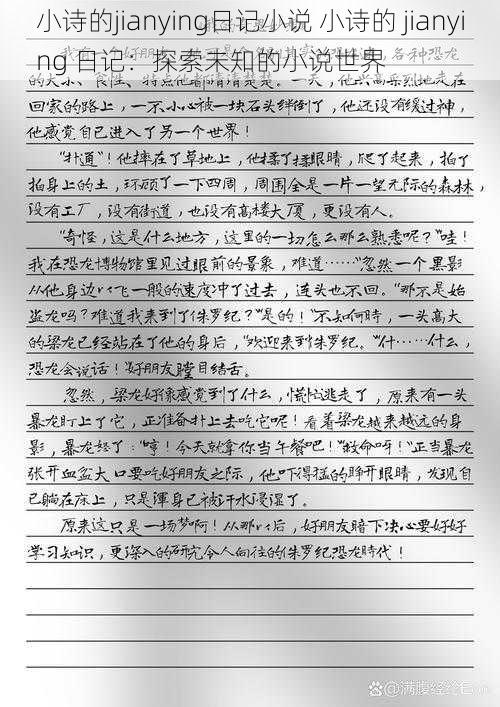 小诗的jianying日记小说 小诗的 jianyi
ng 日记：探索未知的小说世界
各种恐龙
的大小、食性、特点他都清清楚楚。一天，他兴高采烈地走在
回家的路上，一不小心被一块石头绊倒了，他还没有缓过神，
他感觉自己进入了另一个世界！
“扑通”！他摔在了草地上，他揉了揉眼睛，爬了起来，拍了
拍身上的土，环顾了一下四周，周围全是一片一望无际的森林，
没有工厂，没有街道，也没有高楼大厦，更没有人。
“奇怪，这是什么地方，这里的一切怎么那么熟悉呢？”哇！
我在恐龙博物馆里见过眼前的景象，难道……”忽然一个黑影
从他身边以飞一般的速度冲了过去，连头也不回。“那不是始
盗龙吗？难道我来到了侏罗纪？”是的！“不知何時，一头高大
的梁龙已经站在了他的身后，“欢迎来到侏罗纪。”什……什么，
恐龙会说话！”好朋友瞠目结舌。
忽然，梁龙好像感觉到了什么，慌忙逃走了，原来有一头
暴龙盯上了它，正准备扑上去吃它呢！看着梁龙越来越远的身
影，暴龙怒了：“哼！今天就拿你当午餐吧！”救命呀！”正当暴龙
张开血盆大口要吃好朋友之际，他吓得猛的睁开眼睛，发现自
己躺在床上，只是渾身已被汗水浸湿了。
原来这只是一场梦啊！从那以后，好朋友暗下决心要好好
学习知识，更深入的研究令人向往的侏罗纪恐龙時代！